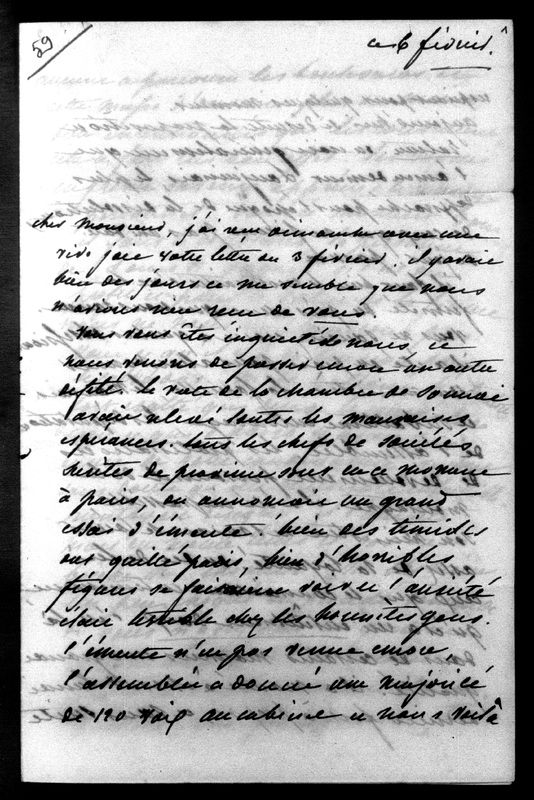 59
ce 6 février.
cher Monsieur, j'ai reçu dimanche avec une
vive joie votre lettre du 3 février. il y avait
bien des jours ce me semble que nous
n'avions rien reçu de vous.
vous vous êtes inquiété de nous, et
nous venons de passer encore un autre
défilé. le vote de la chambre de
avait relevé toutes les mauvaises
espérances. tous les chefs de sociétés
secrètes de province sont en ce moment
à paris, on annonçait un grand
essai d'émeute. bien des timides
ont quitté paris, bien d'horribles
figures se faisaient voir et l'anxiété
était terrible chez les honnêtes gens.
l'émeute n'est pas venue encore,
l'assemblée a donné une majorité
de 120 voix au cabinet et nous voilà